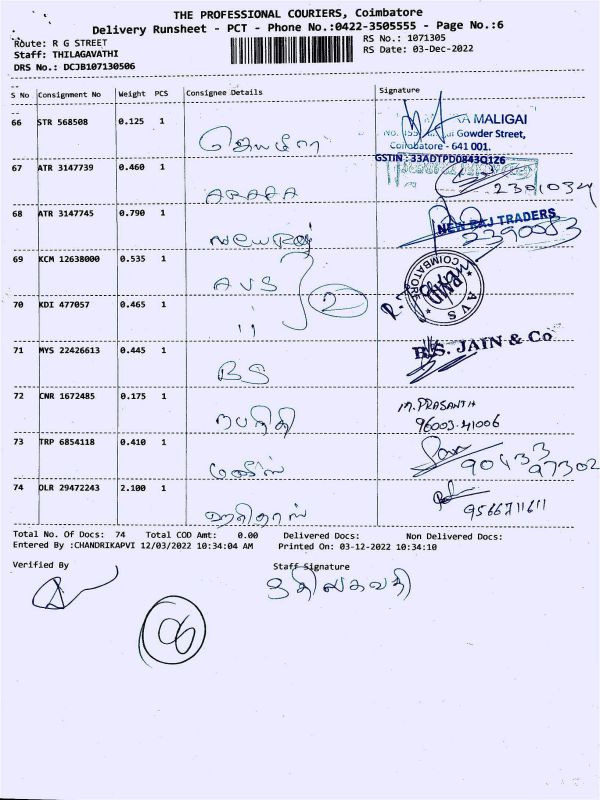 THE PROFESSIONAL COURIERS, Coimbatore
Delivery Runsheet - PCT - Phone No.:0422-3505555 - Page No.:6
Route: R G STREET
RS No.: 1071305
Staff: THILAGAVATHI
RS Date: 03-Dec-2022
DRS No.: DCJB107130506
S No Consignment No Weight PCS Consignee Details Signature
66 STR 568508 0.125 1
MALIGAI
Gowder Street,
Coimbatore - 641 001.
GSTIN : 33ADTPD0843Q1Z6
67 ATR 3147739 0.460 1
2391034
68 ATR 3147745 0.790 1 New Raj
NEW RAJ TRADERS
2390083
69 KCM 12638000 0.535 1 AVS
COIMBATORE
AVS
2
70 KDI 477057 0.465 1 ii
71 MYS 22426613 0.445 1 BS
B.S. JAIN & Co
72 CNR 1672485 0.175 1
M. PRASANTH
96003 41006
73 TRP 6854118 0.410 1
90433
97302
74 DLR 29472243 2.100 1
9566711611
Total No. Of Docs: 74 Total COD Amt: 0.00 Delivered Docs: Non Delivered Docs:
Entered By :CHANDRIKAPVI 12/03/2022 10:34:04 AM Printed On: 03-12-2022 10:34:10
Verified By
Staff Signature
திலகவதி
06